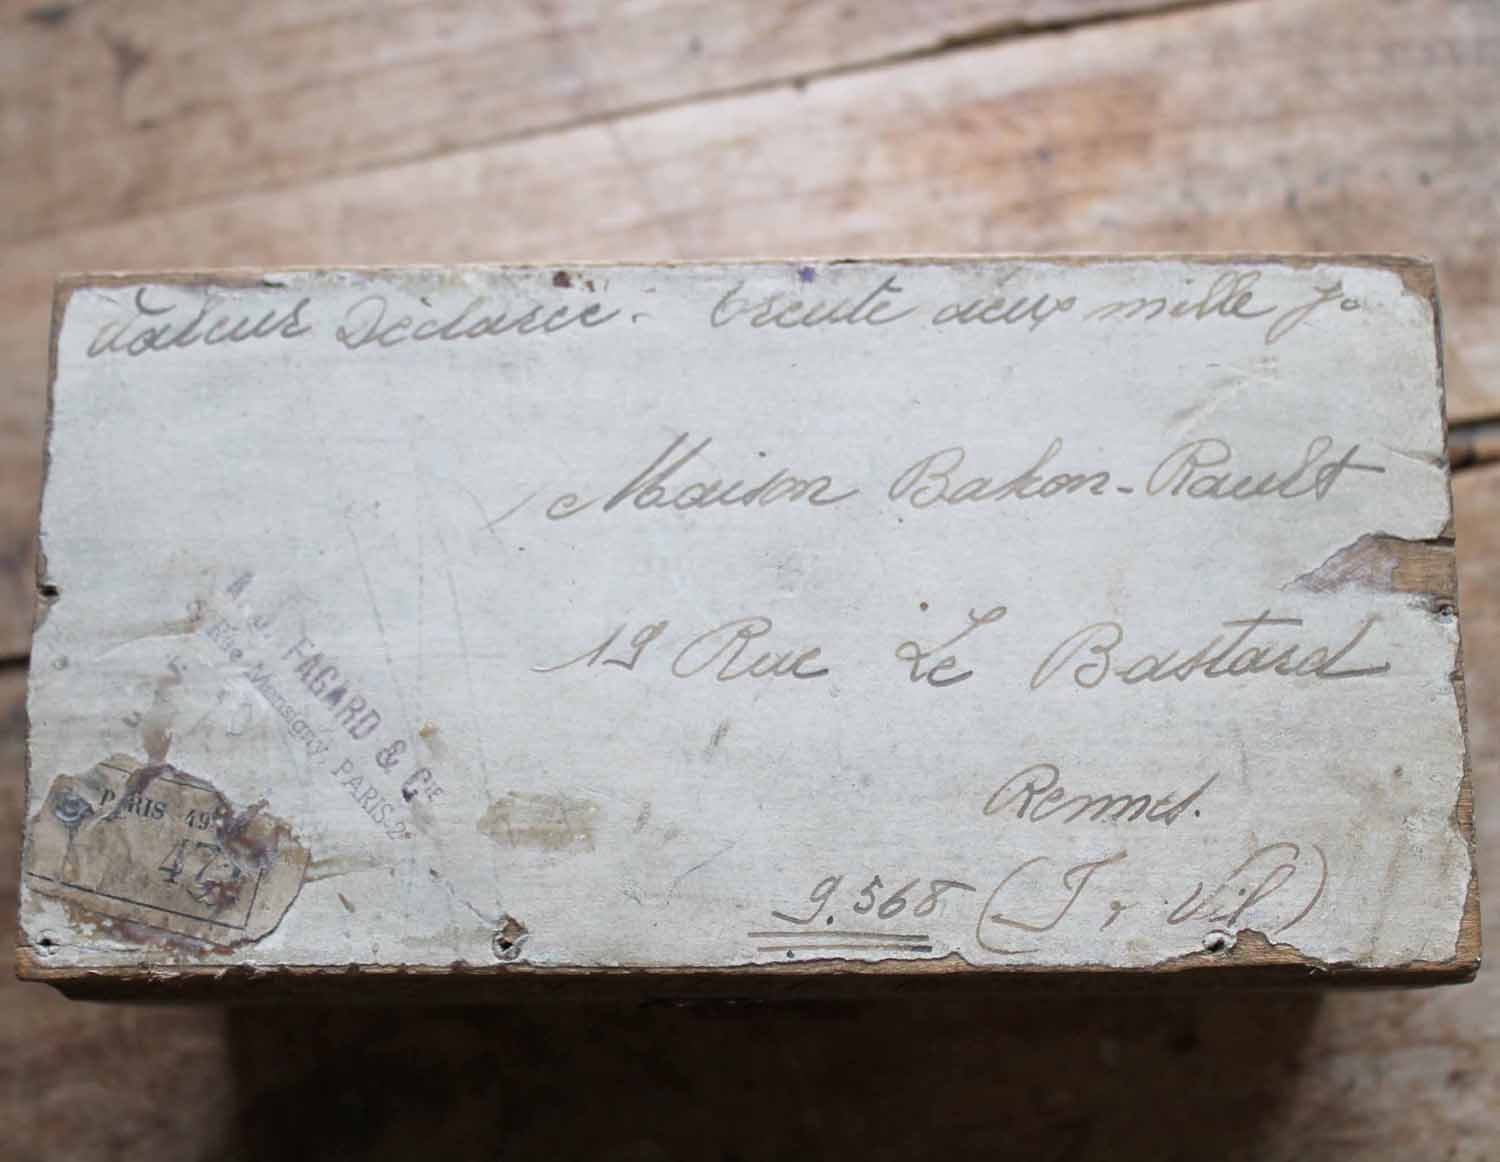 Valeur Déclarée. Trente deux mille
Maison Bahon-Rault
19 Rue Le Bastard
Rennes.
9.568 (I & Vil)
A. J. FAGARD & Cie
8 Rue Monsigny, PARIS-2e
PARIS 49
47